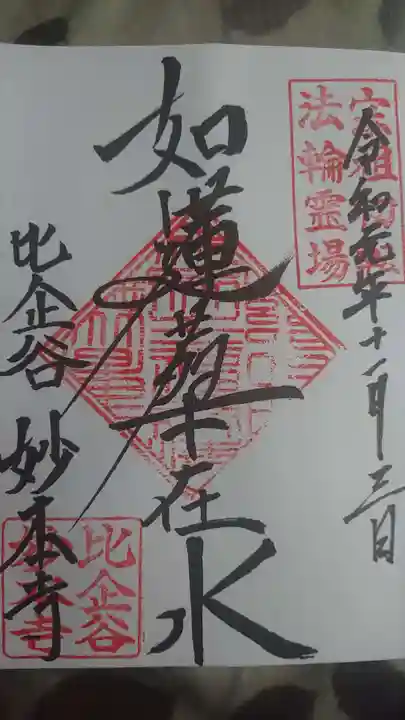 令和元年十一月三日
法輪霊場
如蓮華在水
比企谷 妙本寺
比企谷